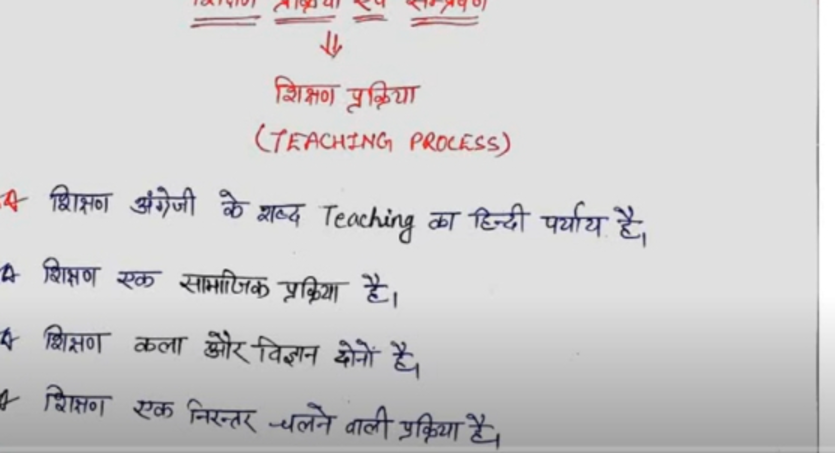 शिक्षण प्रक्रिया एवं सम्प्रेषण
शिक्षण प्रक्रिया
(TEACHING PROCESS)
शिक्षण अंग्रेजी के शब्द Teaching का हिन्दी पर्याय है।
शिक्षण एक सामाजिक प्रक्रिया है।
शिक्षण कला और विज्ञान दोनों है।
शिक्षण एक निरन्तर चलने वाली प्रक्रिया है।